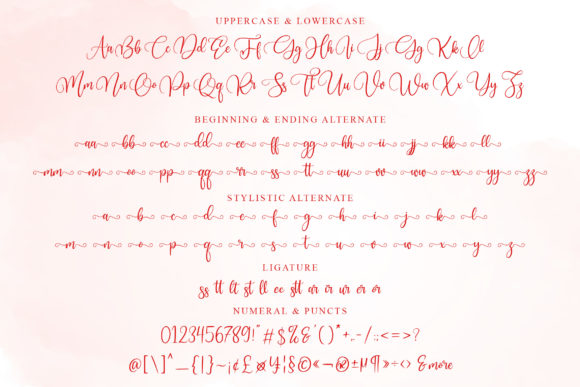 UPPERCASE & LOWERCASE
Aa Bb Cc Dd Ee Ff Gg Hh Ii Jj Gg Kk Ll
Mm Nn Oo Pp Qq Rr Ss Tt Uu Vv Ww Xx Yy Zz
BEGINNING & ENDING ALTERNATE
aa bb cc dd ee ff gg hh ii jj kk ll
mm nn oo pp qq rr ss tt uu vv ww xx yy zz
STYLISTIC ALTERNATE
a b c d e f g h i j k l
m n o p q r s t u v w x y z
LIGATURE
ss tt lt st ll ee stt ar ir ur er or
NUMERAL & PUNCTS
0123456789!"#$%&'()*+,-./:;<=>?
@[\]^_{|}~¡¢£¤¥¦§©«¬®±µ¶»÷‹› & more